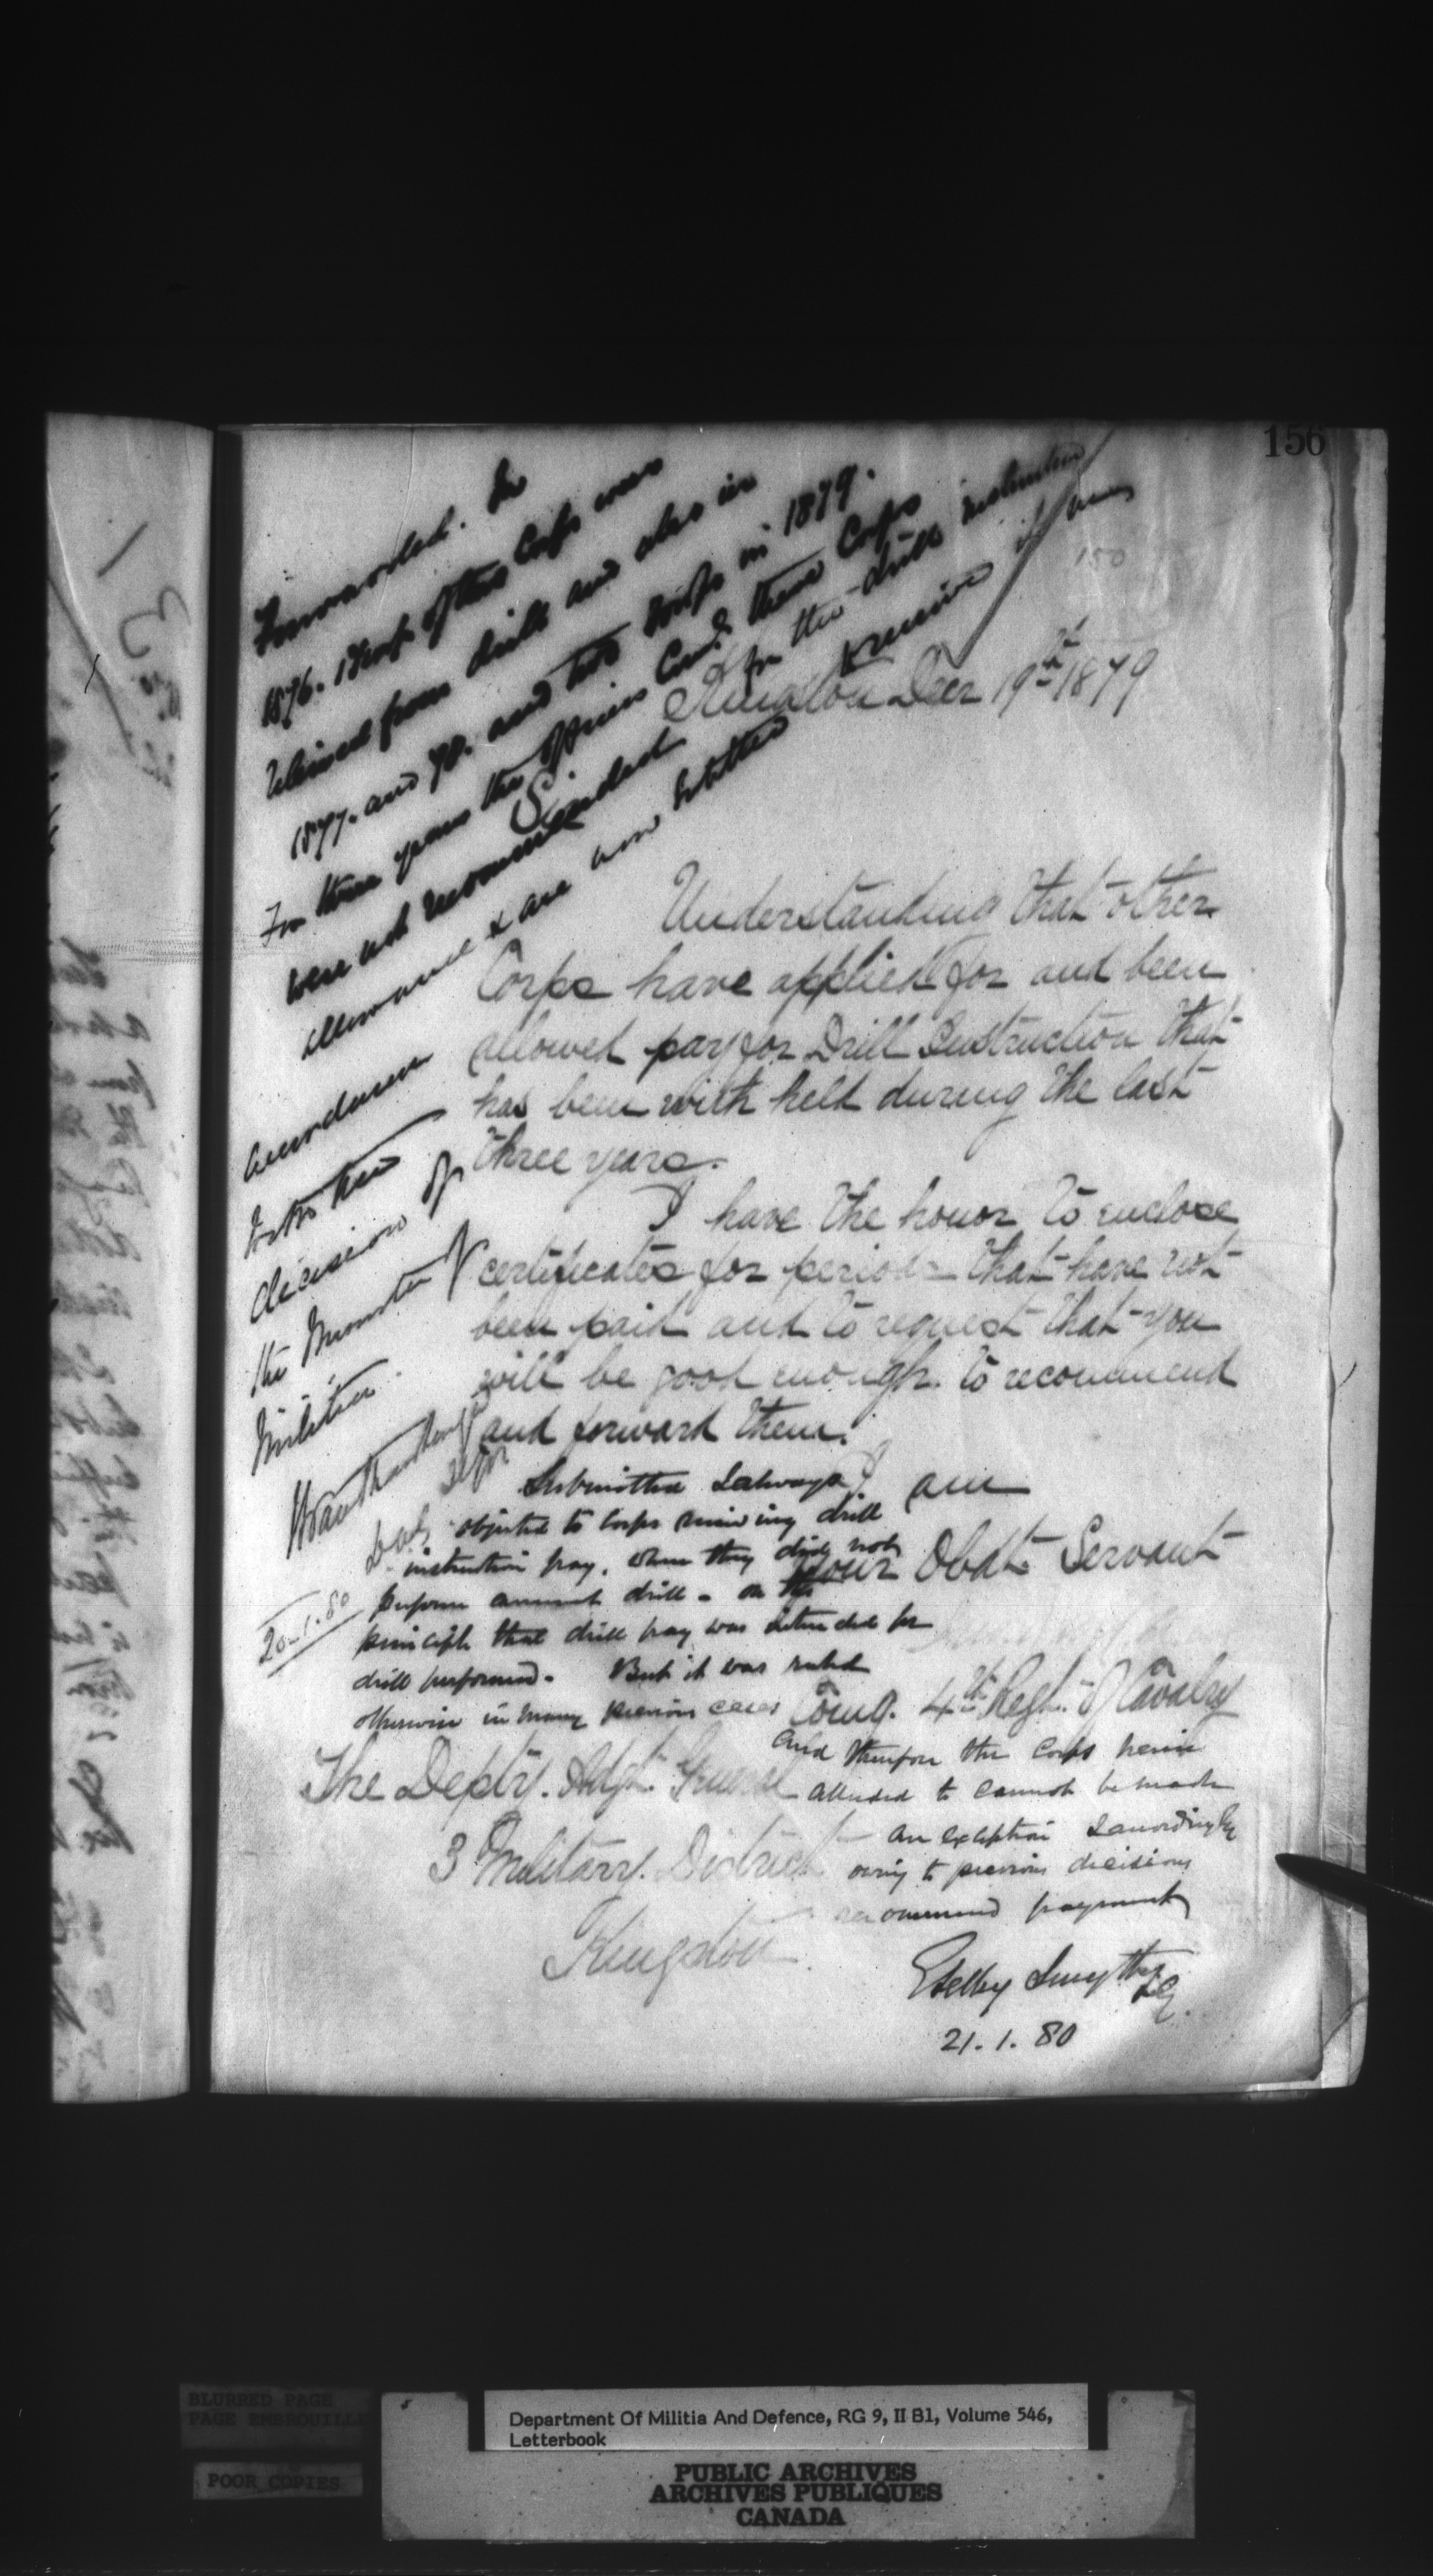 156
150
Forwarded. In
1876. 1 Troop of this Corps was
relieved from drill and also in
1877. and 78. and two Troops in 1879.
For three years the officers Comdg these Corps
were not recommended for the drill instruction
allowance & are now entitled to receive it in
accordance
with the
decision of
the Minister of
Militia.
DAG
20-1-80
Kingston Decr 19th 1879
Sir
Understanding that other
Corps have applied for and been
allowed pay for Drill Instruction that
has been with held during the last
three years.
I have the honor to enclose
certificates for periods that have not
been paid and to request that you
will be good enough to recommend
and forward them.
I am
Your Obdt Servant
Comg. 4th Regt. of Cavalry
The Depty. Adjt. General
3 Military District
Kingston
Submitted I always
objected to Corps receiving drill
instruction pay, when they did not
perform annual drill - on the
principle that drill pay was intended for
drill performed - But it was ruled
otherwise in many previous cases
and therefore the Corps herein
alluded to cannot be made
an exception I accordingly
owing to previous decisions
recommend payment
E Selby Smyth
LG.
21. 1. 80
BLURRED PAGE
PAGE EMBROUILLE
POOR COPIES
Department Of Militia And Defence, RG 9, II B1, Volume 546,
Letterbook
PUBLIC ARCHIVES
ARCHIVES PUBLIQUES
CANADA